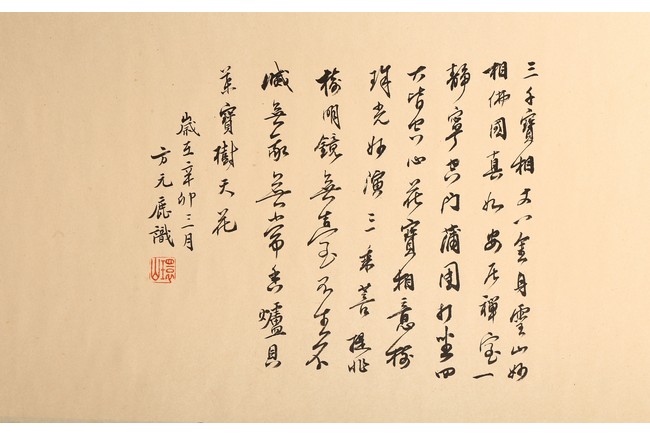 三千寶相丈八金身雲山妙
相佛國真如安居禪室一
靜寧空門蒲團打坐四
大皆空心花寶相意樹
珠光妙演三乘菩提非
樹明鏡無臺不生不
滅無象無常香爐貝
葉寶樹天花
歲在辛卯三月
方元鹿識
環山